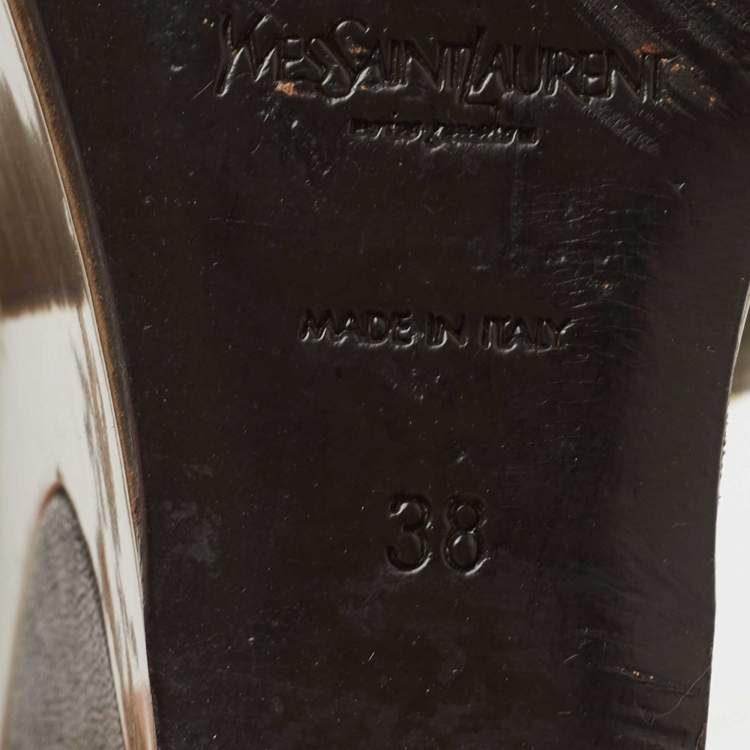 YVESSAINTLAURENT
MADE IN ITALY
38